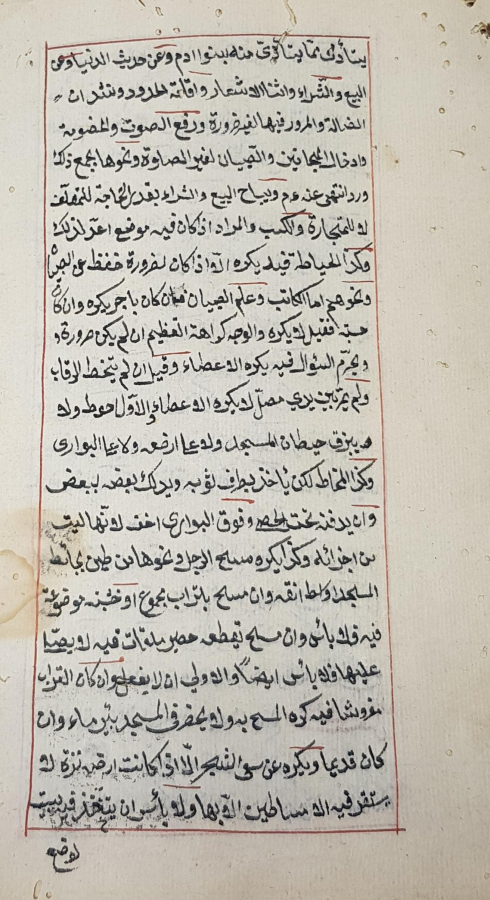 يتأذى مما يتأذى منه بنوا ادم وعن حديث الدنيا وعن
البيع والشراء وانشاد الاشعار واقامة الحدود ونشدان
الضالة والمرور فيها لغير ضرورة ورفع الصوت والخصومة
وادخال المجانين والصبيان لغير الصلوة ونحوها بجمع ذلك
ورد النهى عنه عم ويباح البيع والشراء بقدر الحاجة للمعتكف
لا للتجارة والكسب والمراد اذا كان فيه موضع اعد لذلك
وكذا الخياطة فيه يكره الا اذا كان لضرورة حفظ عن الصبيان
ونحوهم اما الكاتب ومعلم الصبيان فان كان باجر يكره وان كان
حسبة فقيل لا يكره والوجه كراهة التعظيم ان لم يكن ضرورة و
ويحرم السؤال فيه يكره الاعطاء وقيل ان لم يتخط الرقاب
ولم يمر بين يدي مصل لا يكره الاعطاء والاول احوط ولا
يبزق حيطان المسجد ولا على ارضه ولا على البوارى
وكذا المخاط لكن ياخذ بطرف ثوبه ويدلك بعضه ببعض
وان يدفنه تحت الحصير وفوق البوارى اخف لانها ليست
من اجزائه وكذا يكره مسح الرجل ونحوها من طين بحائط
المسجد او اسطوانته وان مسح بتراب مجموع او خشبة موضوعة
فيه فلا بأس وان مسح بقطعة حصير ملقات فيه لا يصلى
عليها فلا بأس ايضا والاولى ان لا يفعل وان كان التراب
مفروشا فيه كره المسح به ولا يحفر في المسجد بئر ماء وان
كان قديما ويكره غرس الشجر الا اذا كانت ارضه نزة لا
يستقر فيه الاساطين الا بها ولا بأس ان يتخذ فيه بيت
لوضع